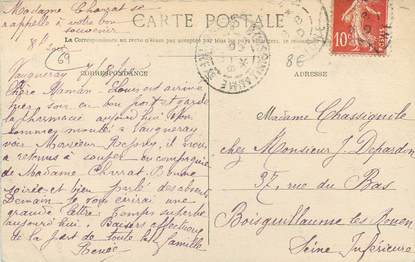 Madame Chanzat se
rappelle à votre bon
souvenir
CARTE POSTALE
La Correspondance au recto n'est pas acceptée par tous les pays
69
8€
10
CORRESPONDANCE
ADRESSE
Vaugneray
Chère Maman Louis est arrivé
hier soir en bon port et garde
la pharmacie aujourd'hui nous
sommes montés à Vaugneray
voir Monsieur il nous
a retenus à souper en compagnie
de Madame bonne
soirée et bien parlé des absents
Demain je vous écrirai une
grande lettre Temps superbe
aujourd'hui. Baisers affectueux
de la part de toute la famille
Madame Chassignole
chez Monsieur J. Dejardin
37, rue du Bas
Boisguillaume les Rouen
Seine Inférieure